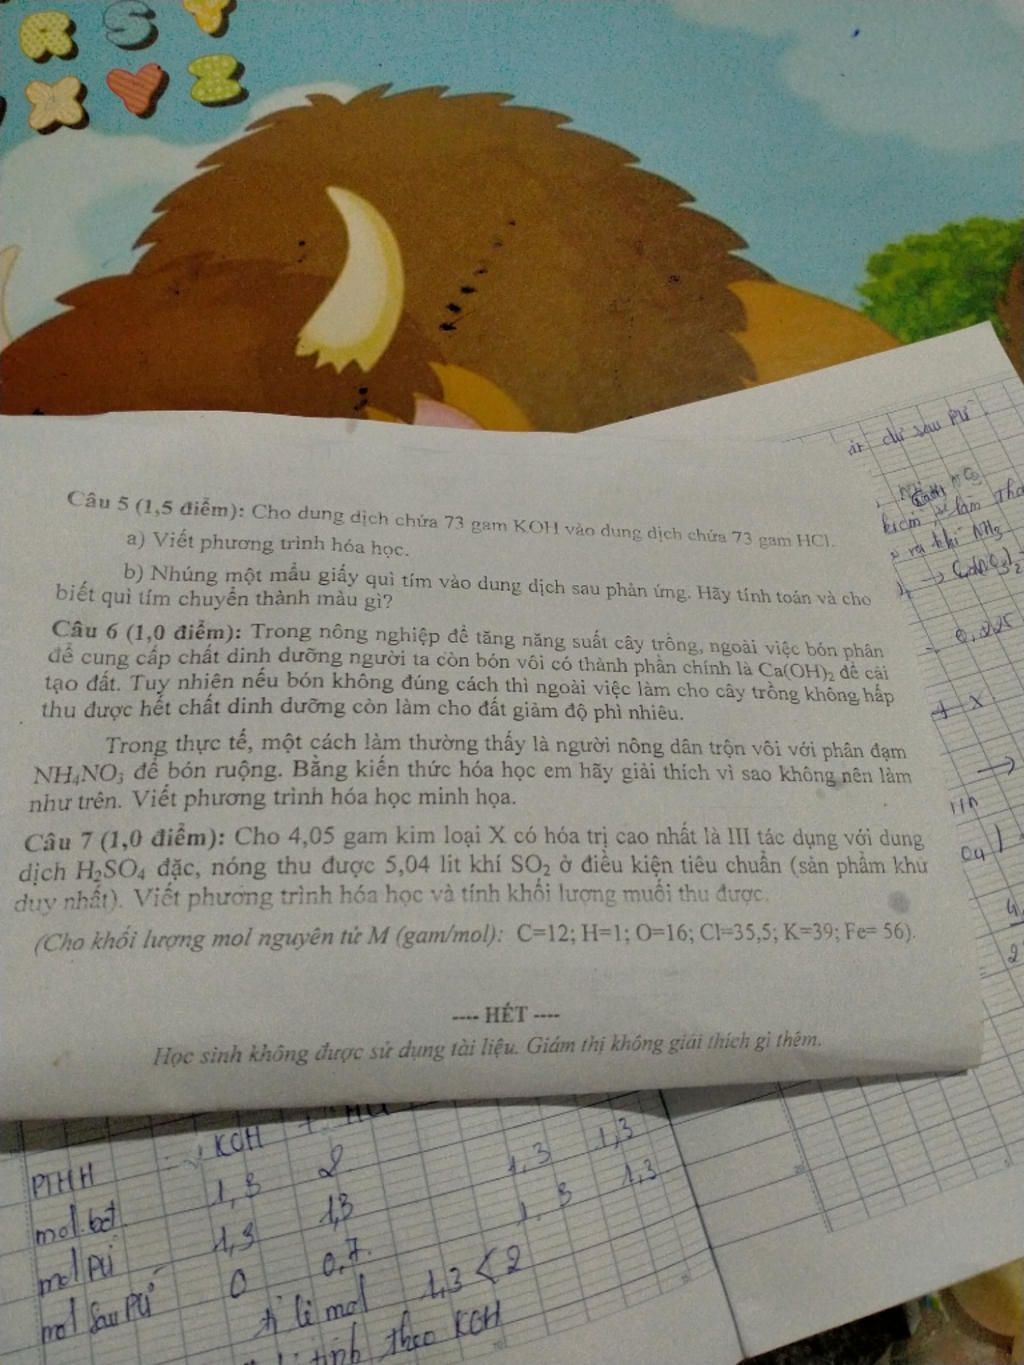 R S Y
X I
Câu 5 (1,5 điểm): Cho dung dịch chứa 73 gam KOH vào dung dịch chứa 73 gam HCl.
a) Viết phương trình hóa học.
b) Nhúng một mẩu giấy quì tím vào dung dịch sau phản ứng. Hãy tính toán và cho
biết quì tím chuyển thành màu gì?
Câu 6 (1,0 điểm): Trong nông nghiệp để tăng năng suất cây trồng, ngoài việc bón phân
để cung cấp chất dinh dưỡng người ta còn bón vôi có thành phần chính là Ca(OH)₂ để cải
tạo đất. Tuy nhiên nếu bón không đúng cách thì ngoài việc làm cho cây trồng không hấp
thu được hết chất dinh dưỡng còn làm cho đất giảm độ phì nhiêu.
Trong thực tế, một cách làm thường thấy là người nông dân trộn vôi với phân đạm
NH₄NO₃ để bón ruộng. Bằng kiến thức hóa học em hãy giải thích vì sao không nên làm
như trên. Viết phương trình hóa học minh họa.
Câu 7 (1,0 điểm): Cho 4,05 gam kim loại X có hóa trị cao nhất là III tác dụng với dung
dịch H₂SO₄ đặc, nóng thu được 5,04 lit khí SO₂ ở điều kiện tiêu chuẩn (sản phẩm khử
duy nhất). Viết phương trình hóa học và tính khối lượng muối thu được.
(Cho khối lượng mol nguyên tử M (gam/mol): C=12; H=1; O=16; Cl=35,5; K=39; Fe= 56).
---- HẾT ----
Học sinh không được sử dụng tài liệu. Giám thị không giải thích gì thêm.
dư sau PƯ
kiềm sẽ làm
ra khí NH₃
0,225
+ X
PTHH KOH +
mol bđ 1,3 2 1,3 1,3
mol PƯ 1,3 1,3 1,3 1,3
mol sau PƯ 0 0,7
tỉ lệ mol 1,3 < 2
tính theo KOH